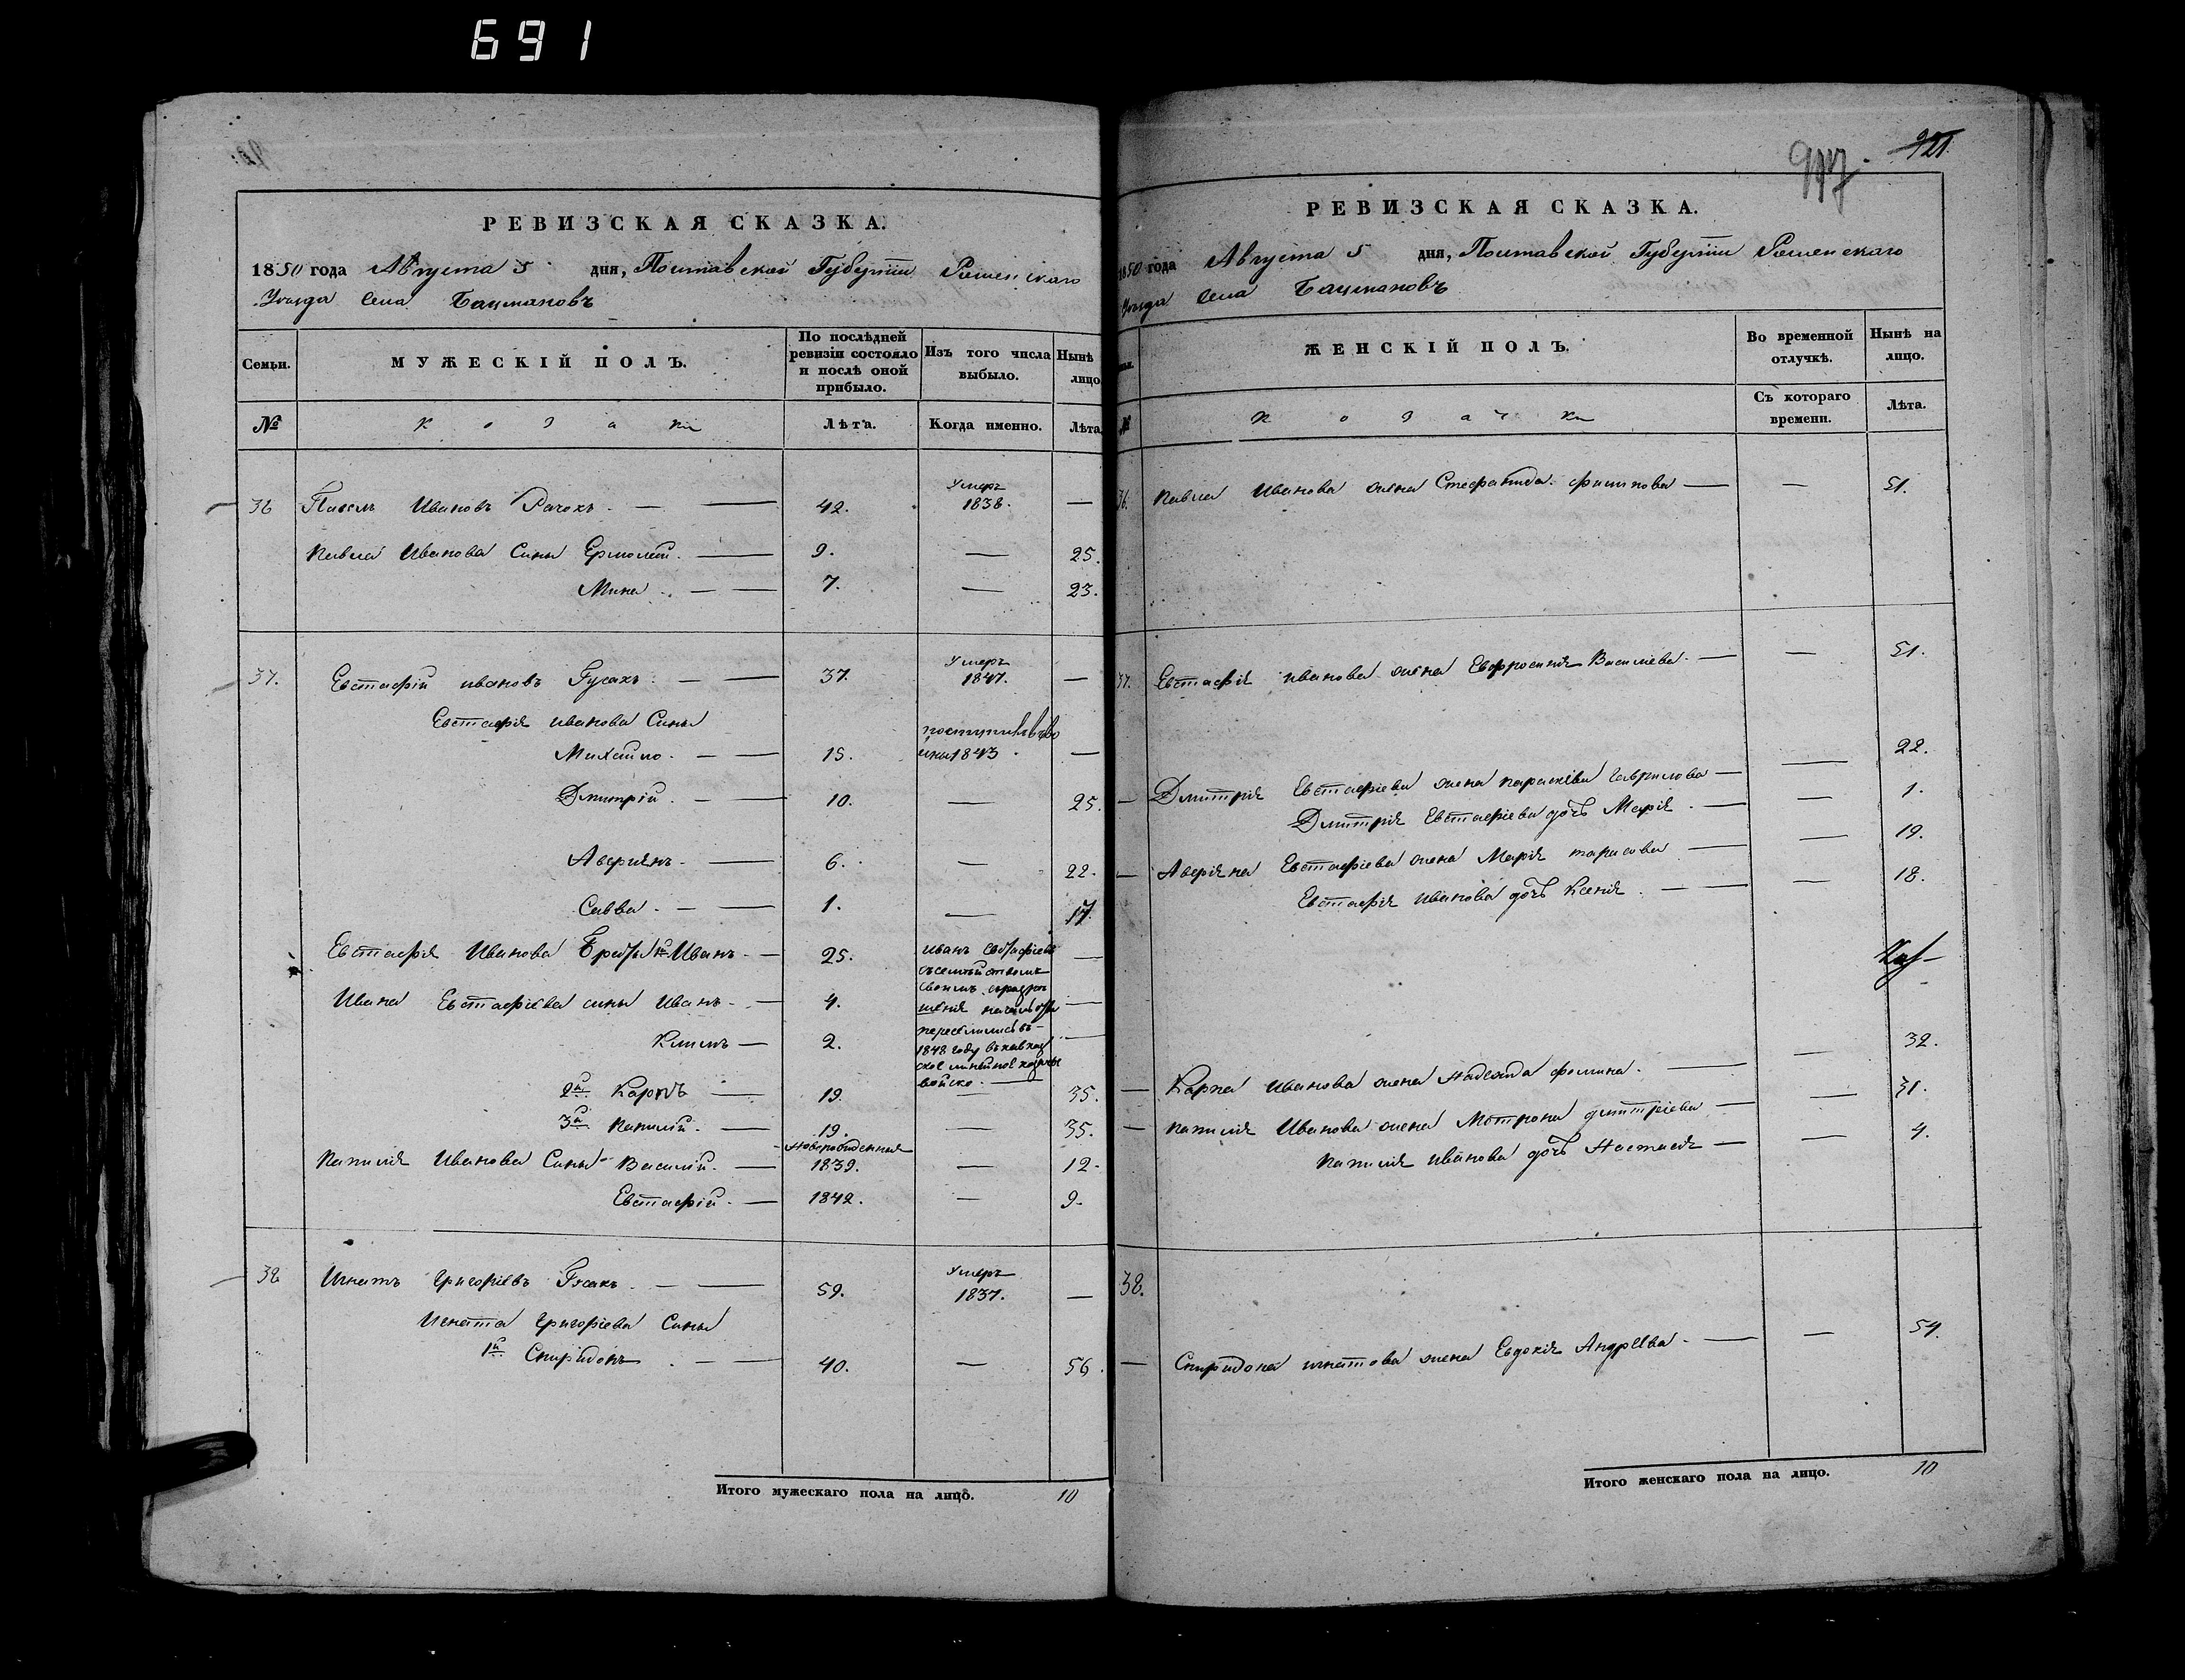 691
РЕВИЗСКАЯ СКАЗКА.
1850 года Августа 5 дня, Полтавской Губерніи Роменскаго
Уѣзда Села Бацмановъ
Семьи.
МУЖЕСКІЙ ПОЛЪ.
По послѣдней ревизіи состояло и послѣ оной прибыло.
Изъ того числа выбыло.
Нынѣ лицо
№
Козаки
Лѣта.
Когда именно.
Лѣта
36 Павелъ Ивановъ Рачокъ. — 42. Умеръ 1838. —
Павла Иванова Сины Ермолай. — 9. — 25.
Мина — 7. — 23.
37. Евстафій ивановъ Гусакъ. — 37. Умеръ 1847. —
Евстафія иванова Сины
Михайло. — 15. поступилъ въ 1843 —
Дмитрій. — 10. — 25.
Аверіянъ. — 6. — 22.
Савва. — 1. — 17.
Евстафія Иванова Братья 1й Иванъ. — 25. —
Ивана Евстафіева сины Иванъ. — 4. —
Климъ — 2. —
иванъ Евстафіевъ
съ семействомъ
своимъ съ разрѣ
шенія начальства
переселились въ
1848 году въ кавказ
ское линѣйное казачье
войско. —
2й Карпъ — 19. — 35.
3й Капилій. — 19. — 35.
Новорожденныя
Капилія Иванова Сины Василій. — 1839. — 12.
Евстафій. — 1842. — 9.
38 Игнатъ Григоріевъ Гусакъ. — 59. Умеръ 1837. —
Игната Григоріева Сины
1й Спиридонъ. — 40. — 56.
Итого мужескаго пола на лицо. 10
917. 921.
РЕВИЗСКАЯ СКАЗКА.
1850 года Августа 5 дня, Полтавской Губерніи Роменскаго
Уѣзда Села Бацмановъ
ЖЕНСКІЙ ПОЛЪ.
Во временной отлучкѣ.
Нынѣ на лицо.
№
Козачки
Съ котораго времени.
Лѣта.
36. Павла Иванова жена Стефанида — — 51.
37. Евстафія иванова жена Евфросинія Василіева. — — 51.
Дмитрія Евстафіева жена параскива Гаврилова — — 22.
Дмитрія Евстафіева дочь Марія. — — 1.
Аверіяна Евстафіева жена Марія тарасова — — 19.
Евстафія Иванова дочь Ксенія. — — 18.
Карпа Иванова жена Надежда фомина. — — 32.
Капилія Иванова жена Мотрона дмитріева — — 31.
Капилія иванова дочь Настасія — — 4.
38.
Спиридона игнатова жена Евдокія Андрѣева. — — 54.
Итого женскаго пола на лицо. 10